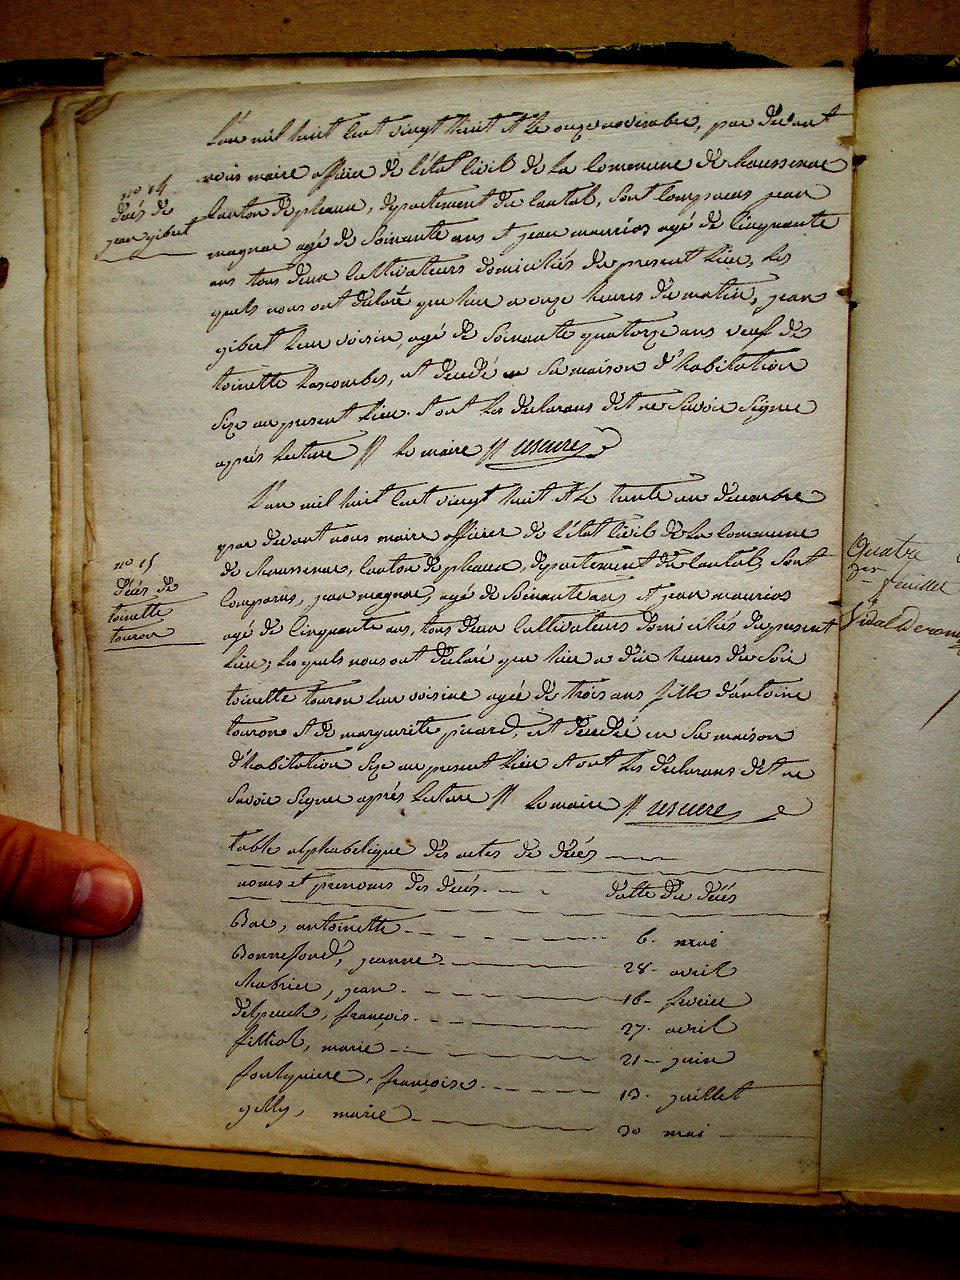 L'an mil huit cent vingt huit et le onze novembre, par devant
nous maire officier de l'état civil de la commune de chaussenac
no 14
décés de
jean gibert
canton de pleaux, département du cantal, sont comparus jean
magnac agé de soixante ans et jean maurios agé de cinquante
ans tous deux cultivateurs domiciliés du présent lieu, les
quels nous ont déclaré que hier a onze heures du matin, jean
gibert leur voisin, agé de soixante quatorze ans veuf de
toinette lascombes, est decedé en sa maison d'habitation
size au present lieu. et ont les déclarans dit ne savoir signer
aprés lecture // le maire //
L'an mil huit cent vingt huit et le trente un décembre
par devant nous maire officier de l'état civil de la commune
de chaussenac, canton de pleaux, département du cantal, sont
no 15
Décés de
toinette
touron
comparus, jean magnac, agé de soixante ans et jean maurios
agé de cinquante ans, tous deux cultivateurs domiciliés du present
lieu, les quels nous ont déclaré que hier a dix heures du soir
toinette touron leur voisine agée de trois ans fille d'antoine
touron et de marguerite picard, est décedée en sa maison
d'habitation size au present lieu et ont les déclarans dit ne
savoir signer aprés lecture // le maire //
table alphabetique des actes de décés
noms et prenoms des décés. datte du décés
Bac, antoinette 6. mai
Bonnefond, jeanne 28. avril
chabrier, jean 16. fevrier
delpeuch, françois 27. avril
filliol, marie 21 juin
foulquiere, françoise 13. juillet
gilly, marie 30 mai
Quatre
feuillet
Vidal